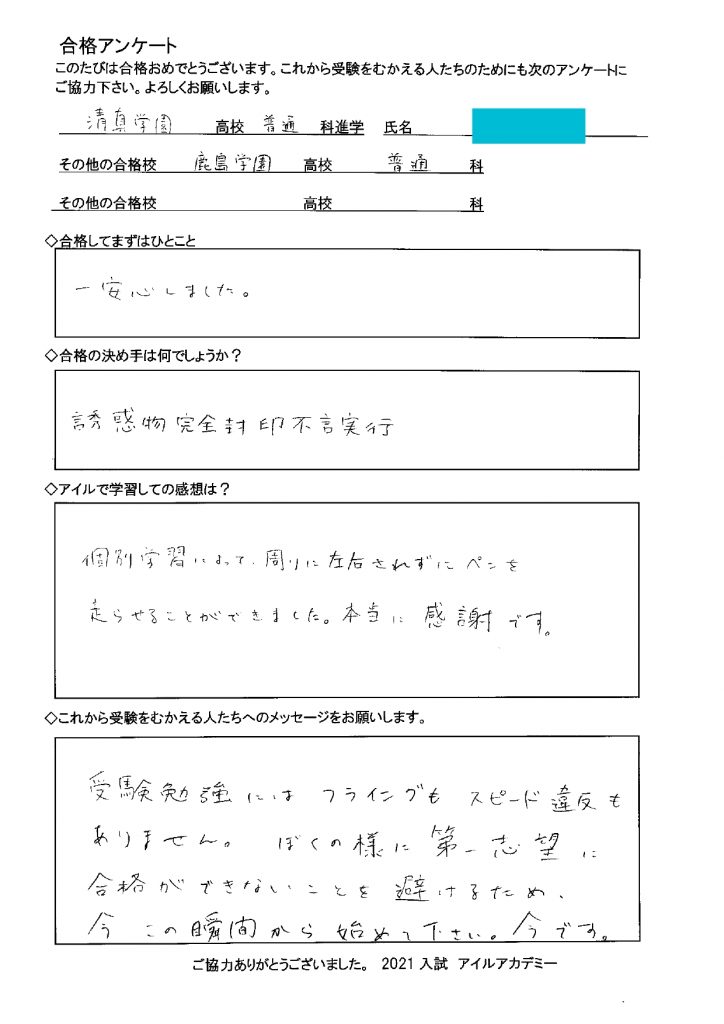 合格アンケート
このたびは合格おめでとうございます。これから受験をむかえる人たちのためにも次のアンケートに
ご協力下さい。よろしくお願いします。
清真学園 高校 普通 科進学 氏名
その他の合格校 鹿島学園 高校 普通 科
その他の合格校 高校 科
◇合格してまずはひとこと
一安心しました。
◇合格の決め手は何でしょうか？
誘惑物完全封印不言実行
◇アイルで学習しての感想は？
個別学習によって、周りに左右されずにペンを
走らせることができました。本当に感謝です。
◇これから受験をむかえる人たちへのメッセージをお願いします。
受験勉強にはフライングもスピード違反も
ありません。ぼくの様に第一志望に
合格ができないことを避けるため、
今この瞬間から始めて下さい。今です。
ご協力ありがとうございました。 2021入試 アイルアカデミー